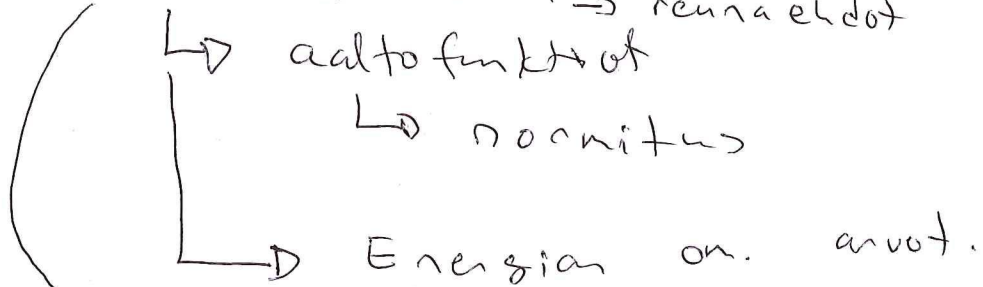 → reunaehdot
↳ aaltofunktiot
↳ normitus
→ Energian om. arvot.